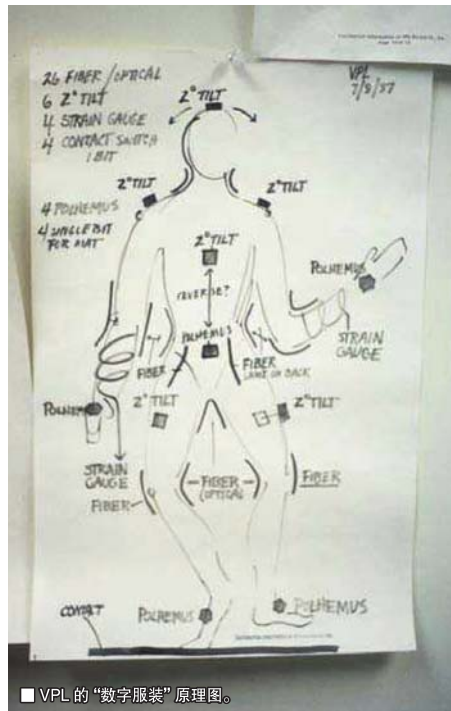 VPL
7/8/87
26 FIBER/OPTICAL
6 2° TILT
4 STRAIN GAUGE
4 CONTACT SWITCH
1 BIT
4 POLHEMUS
4 SINGLE BIT
FOR MAT
2° TILT
2° TILT
2° TILT
2° TILT
REVERSE?
POLHEMUS
POLHEMUS
STRAIN
GAUGE
FIBER
FIBER
SAME ON BACK
POLHEMUS
2° TILT
2° TILT
STRAIN
GAUGE
FIBER
FIBER
(OPTICAL)
FIBER
CONTACT
POLHEMUS
POLHEMUS
■ VPL 的“数字服装”原理图。